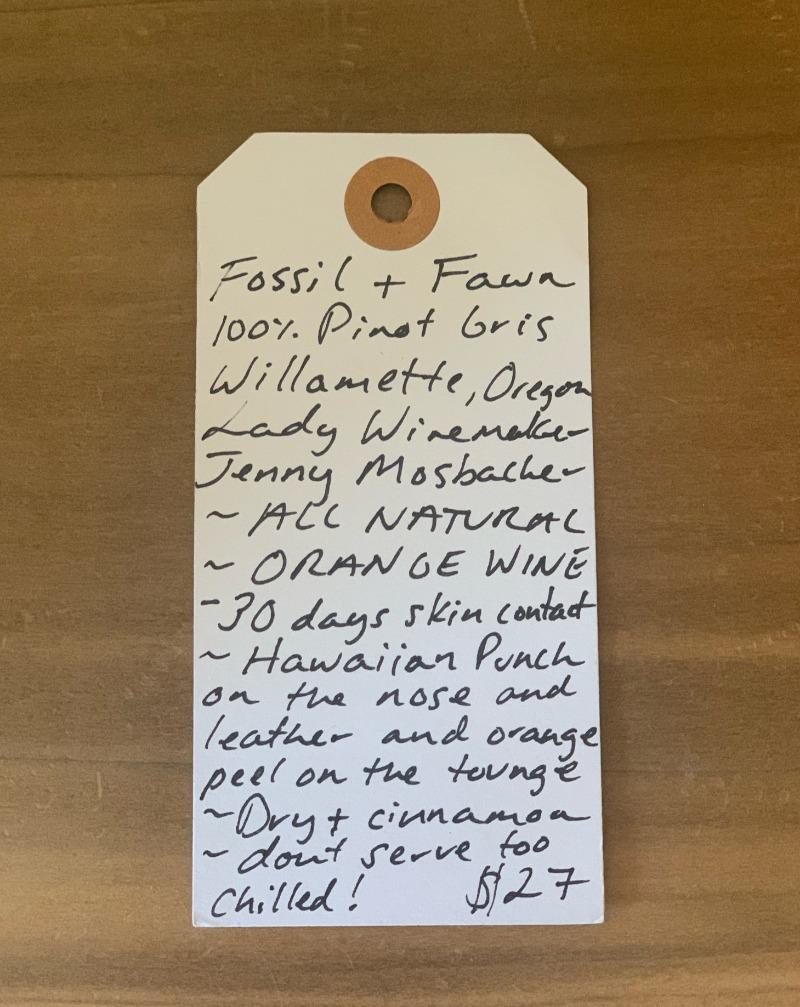 Fossil + Fawn
100% Pinot Gris
Willamette, Oregon
Lady Winemaker
Jenny Mosbacher
~ ALL NATURAL
~ ORANGE WINE
-30 days skin contact
~ Hawaiian Punch
on the nose and
leather and orange
peel on the tounge
~Dry + cinnamon
~ dont serve too
Chilled! $27